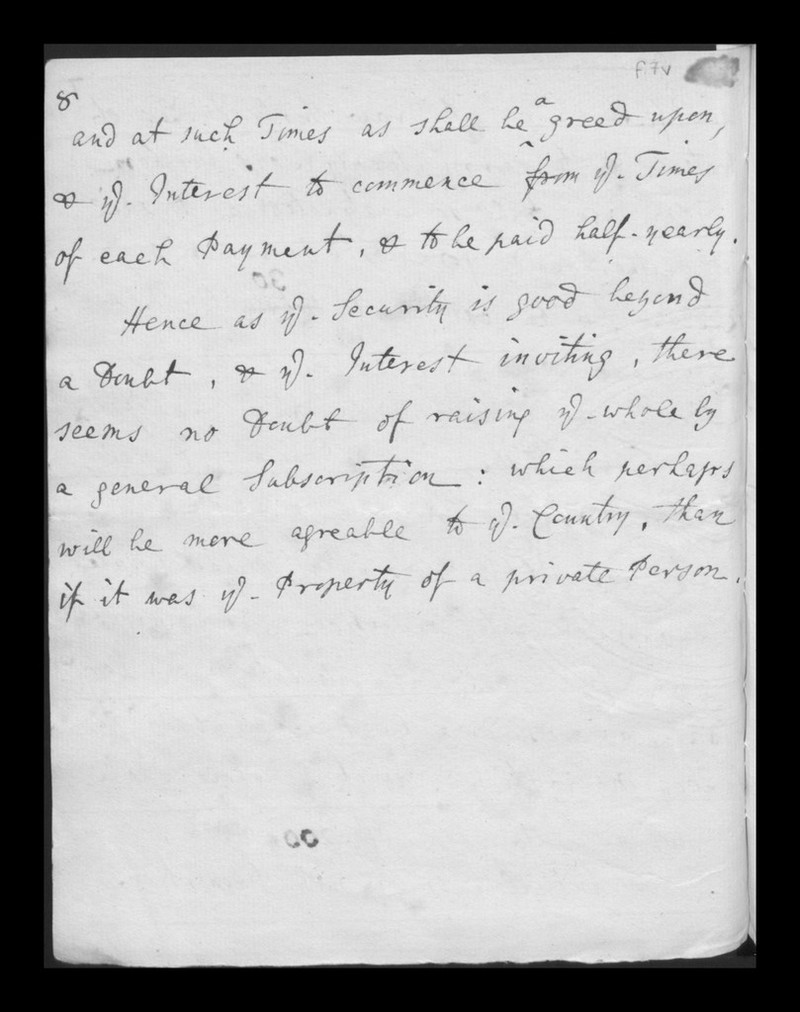 f.7v
8
and at such Times as shall be agreed upon,
& ye. Interest to commence from ye. Times
of each Payment, & to be paid half-yearly.
Hence as ye. Security is good beyond
a Doubt, & ye. Interest inviting, there
seems no Doubt of raising ye. whole by
a general Subscription: which perhaps
will be more agreable to ye. Country, than
if it was ye. Property of a private Person.